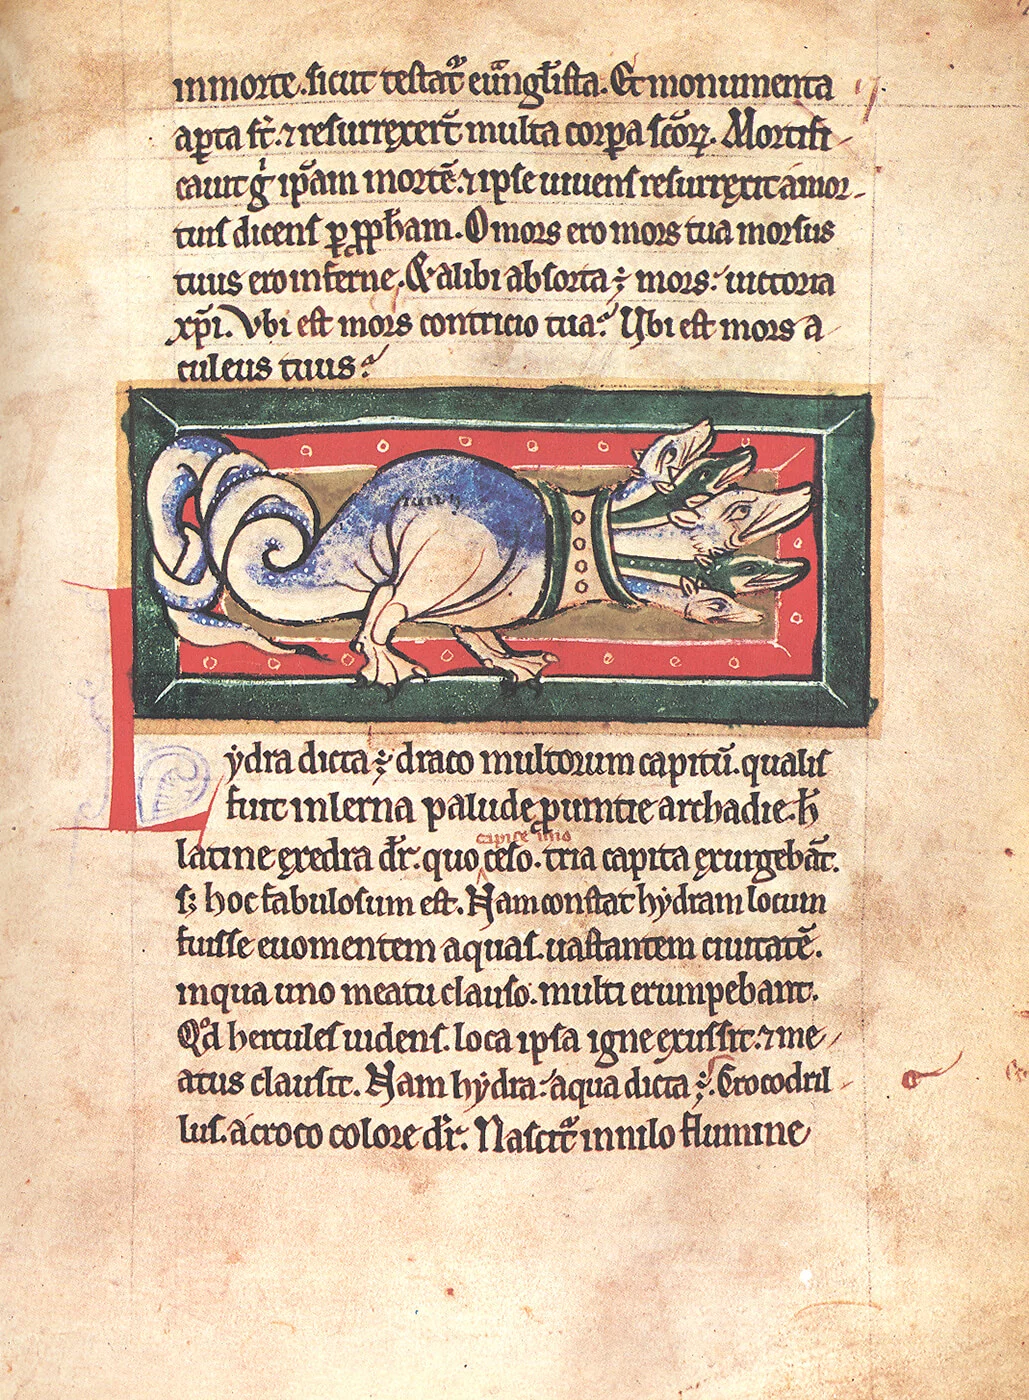 inmorte. sicut testat᷑ euãngl̃ista. Et monumenta
apta st̃. ⁊ resurrexer̃t multa corꝑa sc̃oꝝ. Mortifi
cauit gͥ ip̃am mortẽ. ⁊ ipse uiuens resurrexit a mor-
tuis dicens ꝑ ꝓph̃am. O mors ero mors tua morsus
tuus ero inferne. Et alibi absorta ÷ mors: uictoria
xp̃i. Vbi est mors contricio tua? Ubi est mors a
culeus tuus?
H
ydra dicta ÷ draco multorum capitũ. qualis
fuit in lerna palude ꝓuintie archadie. h̃
latine exedra dr̃. quo
capite uno
ceso. tria capita exurgebãt.
sꝫ hoc fabulosum est. Nam constat hydram locum
fuisse euomentem aquas. uastantem ciuitatẽ.
inqua uno meatu clauso. multi erumpebant.
Qd̊ hercules uidens. loca ipsa igne exussit. ⁊ me
atus clausit. Nam hydra: aqua dicta ÷. Crocodril
lus. a croco colore dr̃. Nascit᷑ innilo flumine